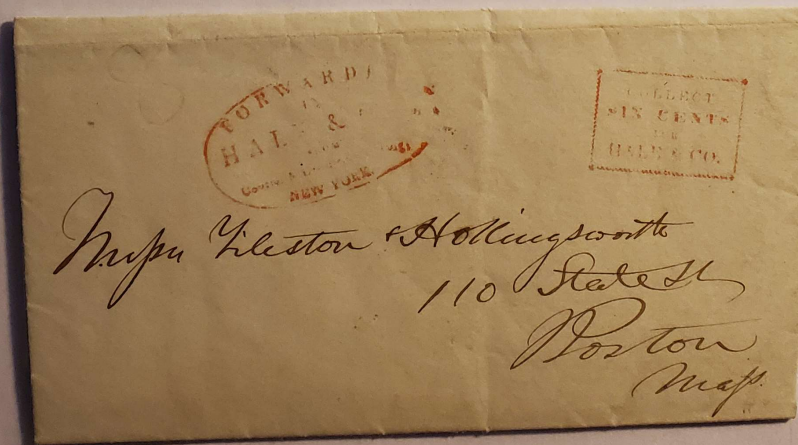 FORWARD
HALE &
NEW YORK.
COLLECT
SIX CENTS
FOR
HALE & CO.
Messrs Tileston & Hollingsworth
110 State St
Boston
Mass.